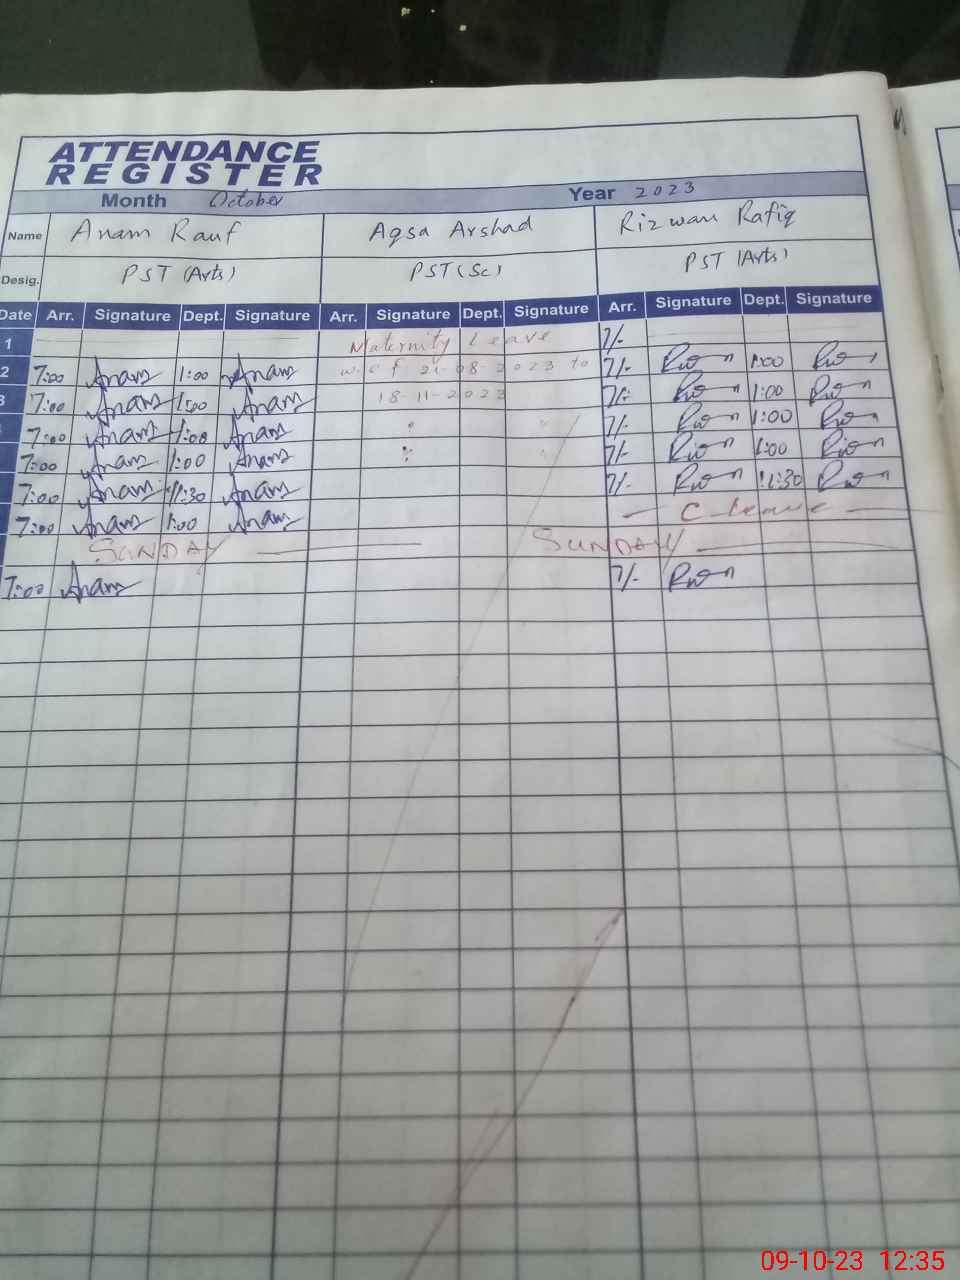 ATTENDANCE
REGISTER
Month October Year 2023
Name Anam Rauf Aqsa Arshad Rizwan Rafiq
Desig. PST (Arts) PST (Sc) PST (Arts)
Date Arr. Signature Dept. Signature Arr. Signature Dept. Signature Arr. Signature Dept. Signature
1 Maternity Leave 7/-
2 7:00 Anam 1:00 Anam w.e.f 21-08-2023 to 7/- Riz 1:00 Riz
3 7:00 Anam 1:00 Anam 18-11-2023 7/- Riz 1:00 Riz
7:00 Anam 1:00 Anam 7/- Riz 1:00 Riz
7:00 Anam 1:00 Anam 7/- Riz 1:00 Riz
7:00 Anam 11:30 Anam 7/- Riz 11:30 Riz
7:00 Anam 1:00 Anam C-leave
SUNDAY SUNDAY
7:00 Anam 7/- Riz
09-10-23 12:35